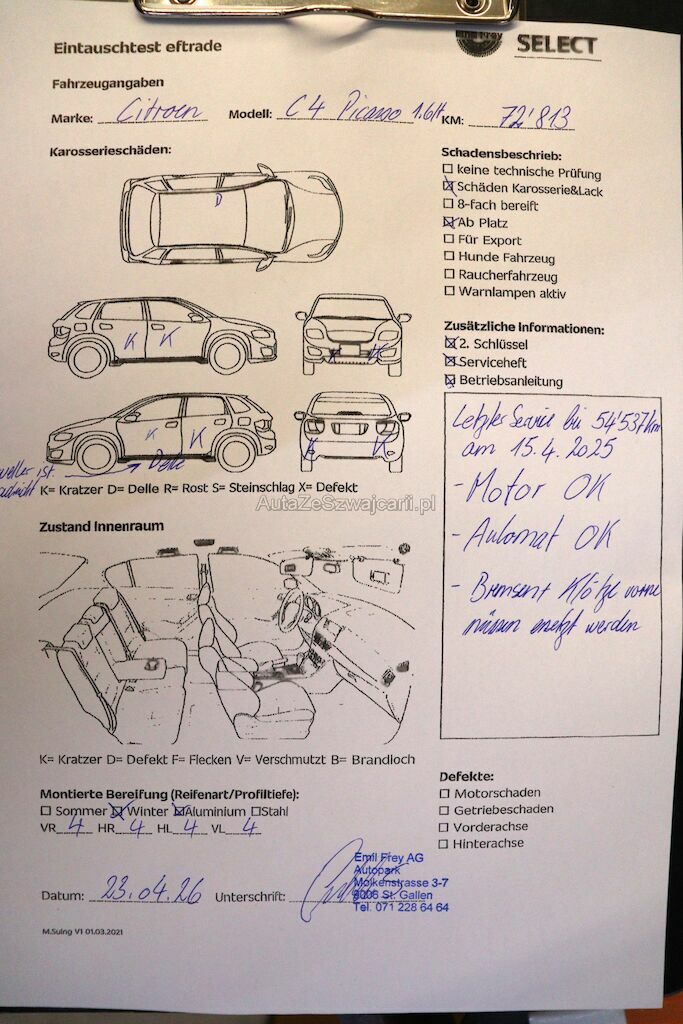 Emil Frey
SELECT
Eintauschtest eftrade
Fahrzeugangaben
Marke: Citroen Modell: C4 Picasso 1.6H KM: 72'813
Karosserieschäden:
D
K K
K K
K K
K K
ist
Delle
K= Kratzer D= Delle R= Rost S= Steinschlag X= Defekt
AutaZeSzwajcarii.pl
Schadensbeschrieb:
☐ keine technische Prüfung
☒ Schäden Karosserie&Lack
☐ 8-fach bereift
☒ Ab Platz
☐ Für Export
☐ Hunde Fahrzeug
☐ Raucherfahrzeug
☐ Warnlampen aktiv
Zusätzliche Informationen:
☒ 2. Schlüssel
☒ Serviceheft
☒ Betriebsanleitung
Letzter Service bei 54'537km
am 15.4.2025
- Motor OK
- Automat OK
- Bremsen + Klötze vorne
müssen ersetzt werden
Zustand Innenraum
K= Kratzer D= Defekt F= Flecken V= Verschmutzt B= Brandloch
Montierte Bereifung (Reifenart/Profiltiefe):
☐ Sommer ☒ Winter ☒ Aluminium ☐ Stahl
VR 4 HR 4 HL 4 VL 4
Defekte:
☐ Motorschaden
☐ Getriebeschaden
☐ Vorderachse
☐ Hinterachse
Datum: 23.04.26 Unterschrift:
Emil Frey AG
Autopark
Molkenstrasse 3-7
9006 St. Gallen
Tel. 071 228 64 64
M.Suing V1 01.03.2021